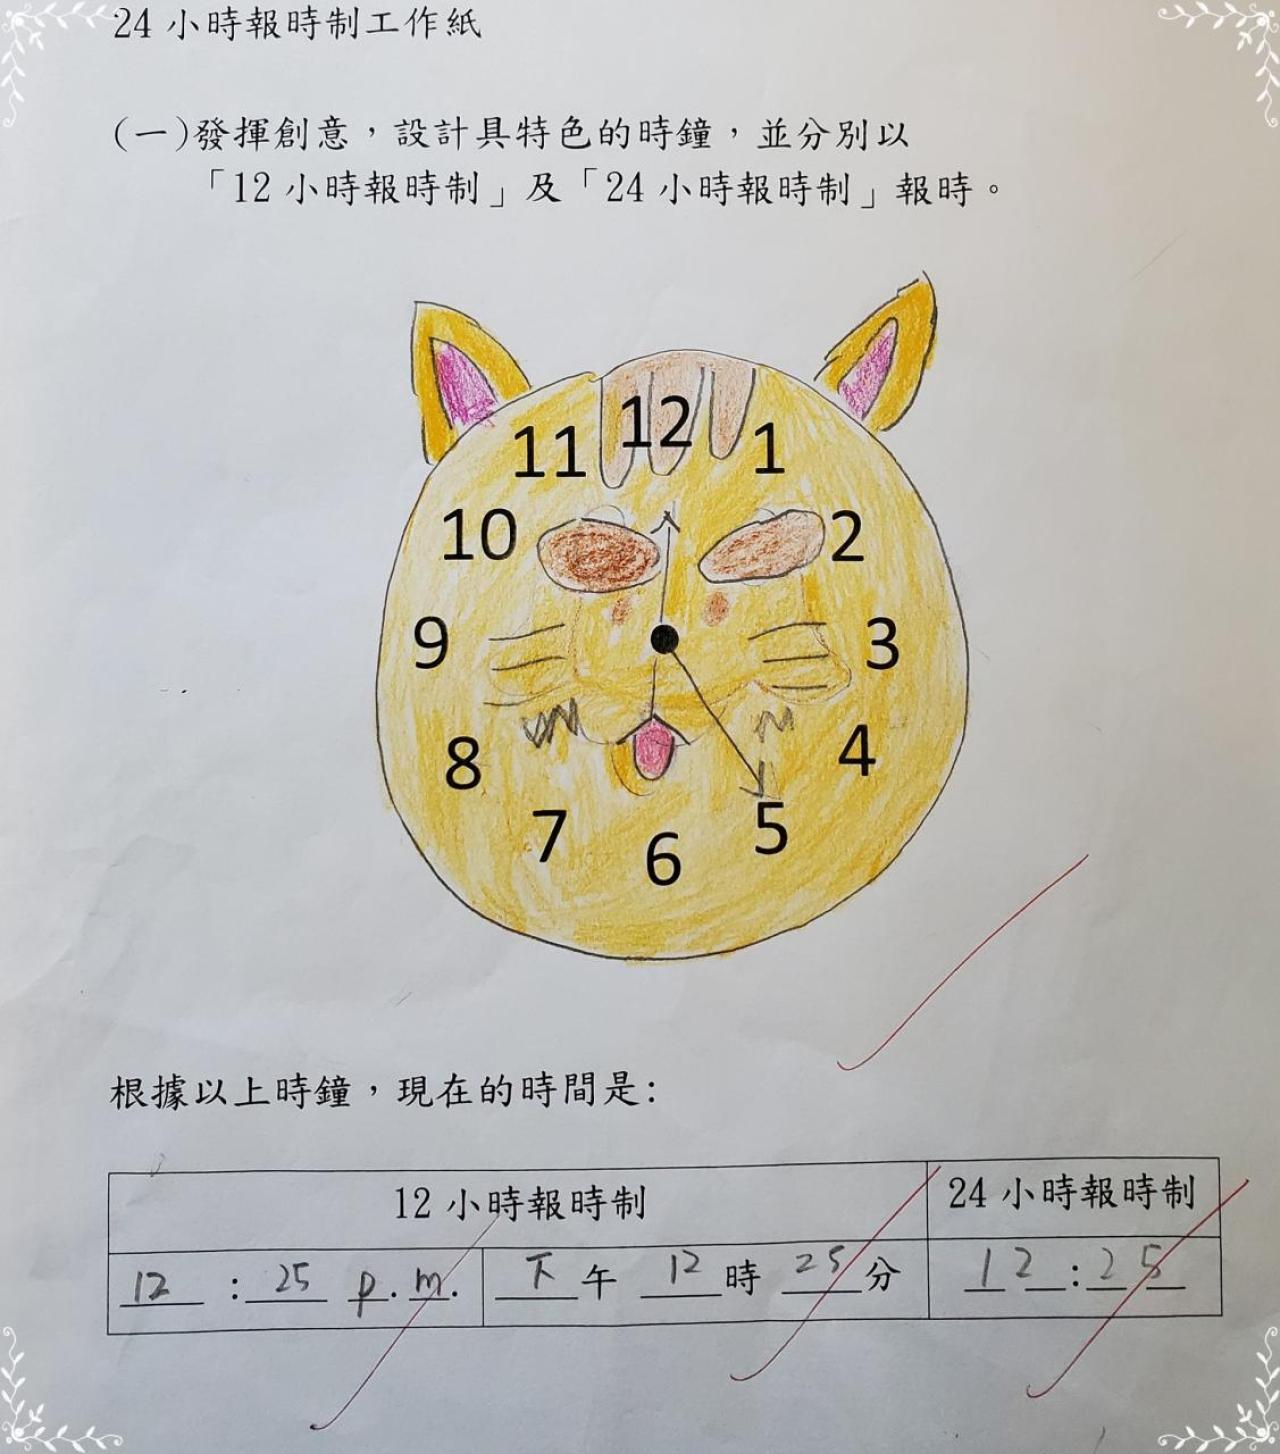 24 小時報時制工作紙
(一)發揮創意，設計具特色的時鐘，並分別以
「12 小時報時制」及「24 小時報時制」報時。
12
11
1
10
2
9
3
8
4
7
5
6
根據以上時鐘，現在的時間是:
12 小時報時制 24 小時報時制
12 : 25 p.m. 下午 12 時 25 分 12:25